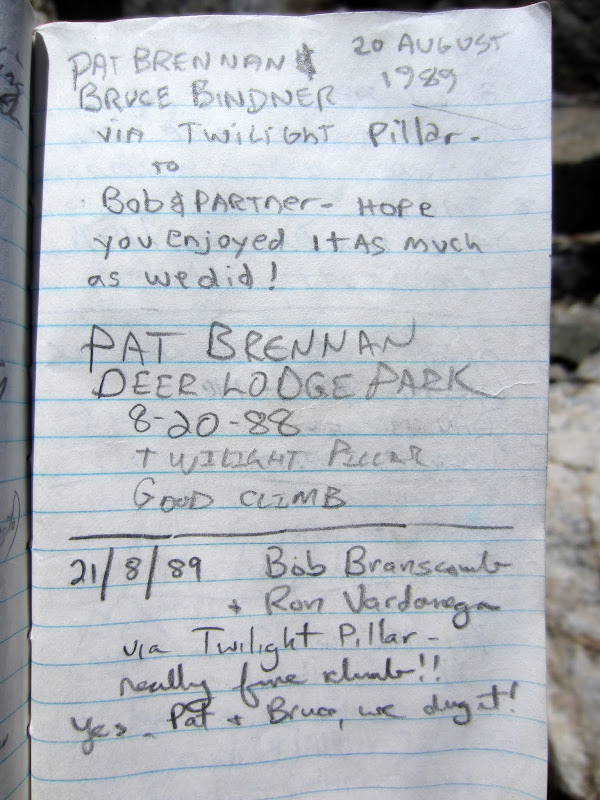 PAT BRENNAN & 20 AUGUST
BRUCE BINDNER 1989
via TWILIGHT Pillar -
TO
Bob & PARTNER - HOPE
you enjoyed it AS much
as we did!
PAT BRENNAN
DEER LODGE PARK
8-20-88
TWILIGHT PILLAR
GOOD CLIMB
21/8/89 Bob Branscomb
+ Ron Vardanega
via Twilight Pillar -
really fine climb!!
Yes - Pat + Bruce, we dug it!